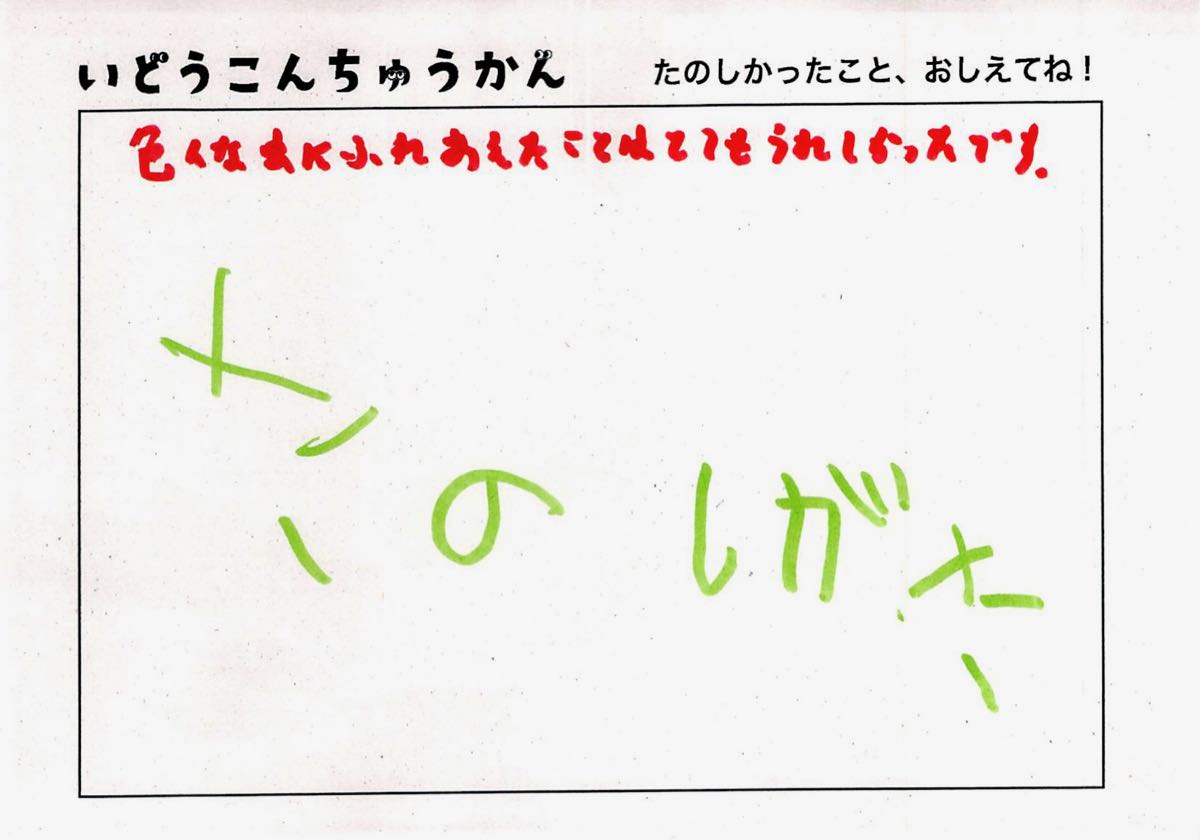 いどうこんちゅうかん たのしかったこと、おしえてね！
色々な虫にふれあえたことはとてもうれしかったです。
たのしがた